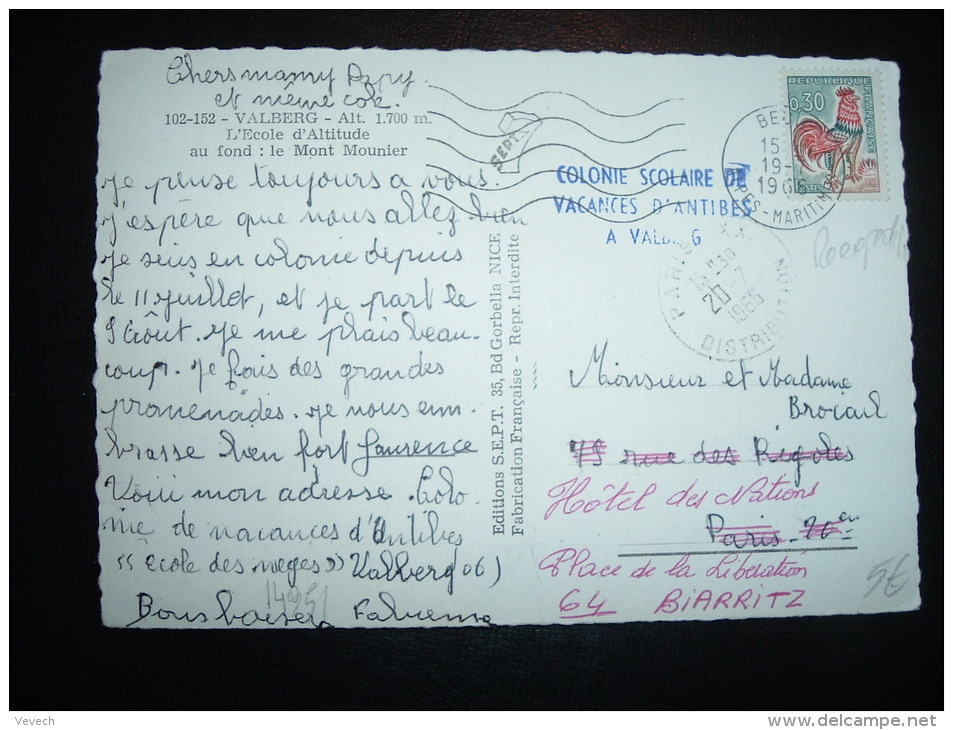 Chers mamy Papy.
et même cok.
102-152 - VALBERG - Alt. 1.700 m.
L'Ecole d'Altitude
au fond : le Mont Mounier
Je pense toujours a vous.
J'espère que vous allez bien
Je suis en colonie depuis
le 11 juillet, et je part le
9 Août. Je me plais beau-
coup. Je fais des grandes
promenades. Je vous em-
brasse bien fort Laurence
Voici mon adresse. Colo-
nie de vacances d'Antibes
"école des neiges" Valberg 06)
Bons baisers Fabienne
Editions S.E.P.T. 35, Bd Gorbella NICE
Fabrication Française - Repr. Interdite
SEPT
COLONIE SCOLAIRE DE
VACANCES D'ANTIBES
A VALBERG
REPUBLIQUE FRANÇAISE
0,30
POSTES
15
19-
1966
ALPES-MARITIMES
PARIS XX
20-7
1966
DISTRIBUTION
Monsieur et Madame
Brocail
79 rue des Rigoles
Hôtel des Nations
Paris 20e
Place de la Libération
64 BIARRITZ
5€
Vevech
delcampe.net